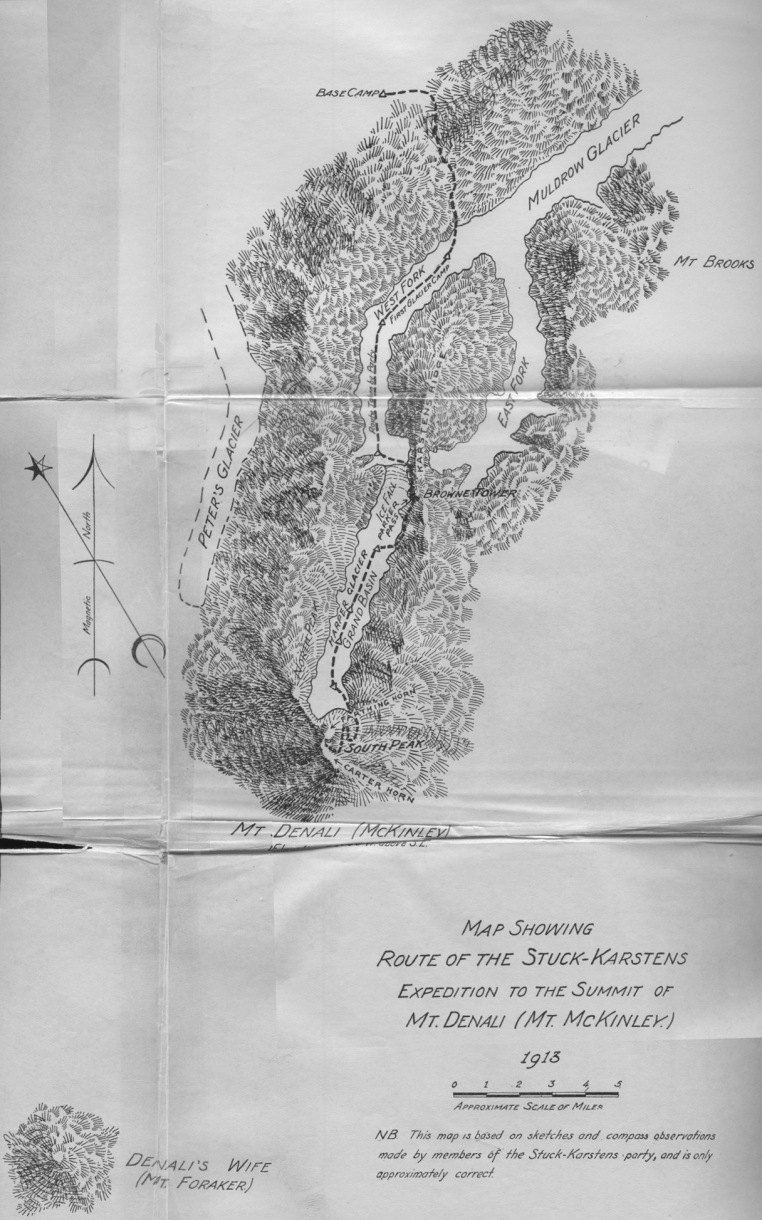 BASE CAMP
MULDROW GLACIER
MT BROOKS
WEST FORK
FIRST GLACIER CAMP
KARSTENS RIDGE
EAST FORK
PETER'S GLACIER
BROWNE TOWER
ICE FALL
PARKER PASS
HARPER GLACIER
GRAND BASIN
NORTH PEAK
Magnetic North
SOUTH PEAK
CARTER HORN
MT. DENALI (MCKINLEY)
above S.L.
MAP SHOWING
ROUTE OF THE STUCK-KARSTENS
EXPEDITION TO THE SUMMIT OF
MT. DENALI (MT. MCKINLEY.)
1913
0 1 2 3 4 5
APPROXIMATE SCALE OF MILES
NB This map is based on sketches and compass observations
made by members of the Stuck-Karstens party, and is only
approximately correct.
DENALI'S WIFE
(MT. FORAKER)